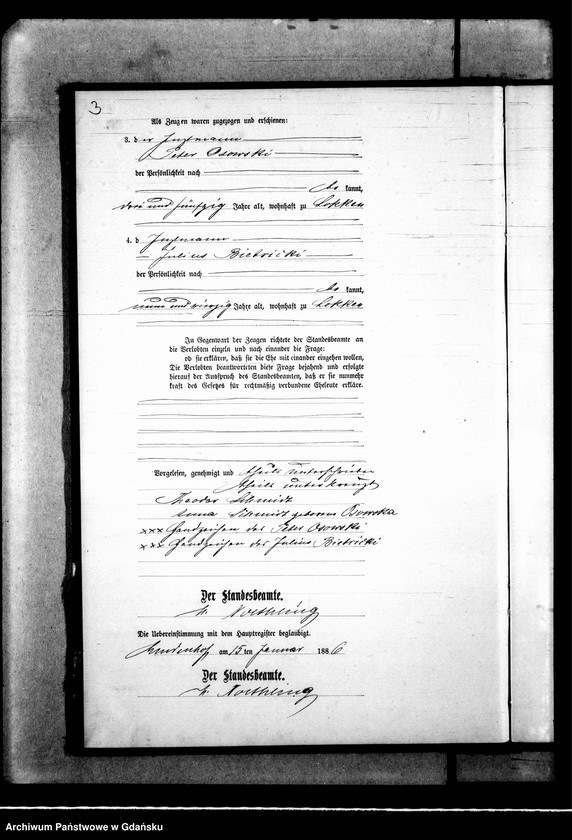 3
Als Zeugen waren zugezogen und erschienen:
3. der
Peter Osowski
der Persönlichkeit nach
be kannt,
drei und fünfzig Jahre alt, wohnhaft zu Lokken
4. d
Julius Bietricki
der Persönlichkeit nach
be kannt,
neun und vierzig Jahre alt, wohnhaft zu Lokken
In Gegenwart der Zeugen richtete der Standesbeamte an
die Verlobten einzeln und nach einander die Frage:
ob sie erklären, daß sie die Ehe mit einander eingehen wollen,
Die Verlobten beantworteten diese Frage bejahend und erfolgte
hierauf der Ausspruch des Standesbeamten, daß er sie nunmehr
kraft des Gesetzes für rechtmäßig verbundene Eheleute erkläre.
Vorgelesen, genehmigt und theils unterschrieben
theils unterkreuzt
Theodor Schmidt
Anna Schmidt geborene Osowska
xxx Handzeichen des Peter Osowski
xxx Handzeichen des Julius Bietricki
Der Standesbeamte.
Noethling
Die Uebereinstimmung mit dem Hauptregister beglaubigt.
am 15 ten Januar 1886
Der Standesbeamte.
Noethling
Archiwum Państwowe w Gdańsku